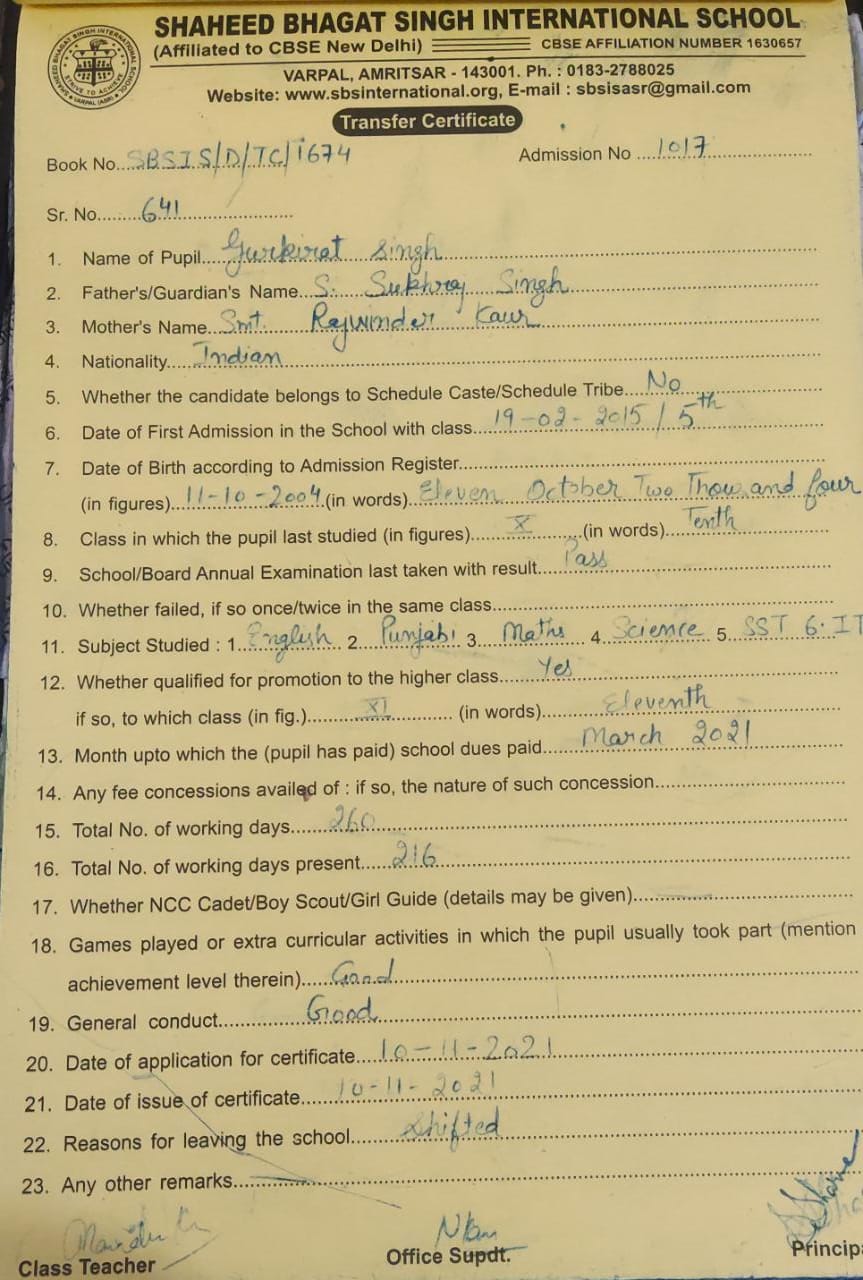 SHAHEED BHAGAT SINGH INTERNATIONAL SCHOOL
(Affiliated to CBSE New Delhi) CBSE AFFILIATION NUMBER 1630657
VARPAL, AMRITSAR - 143001. Ph. : 0183-2788025
Website: www.sbsinternational.org, E-mail : sbsisasr@gmail.com
Transfer Certificate
Book No....SBSIS/D/TC/1674 Admission No ....1017
Sr. No.........641
1. Name of Pupil.....Gurkirat Singh
2. Father's/Guardian's Name...S. Sukhraj Singh
3. Mother's Name...Smt. Rajwinder Kaur
4. Nationality.....Indian
5. Whether the candidate belongs to Schedule Caste/Schedule Tribe....No
6. Date of First Admission in the School with class....19-02-2015 / 5th
7. Date of Birth according to Admission Register.....
(in figures)...11-10-2004.(in words)..Eleven October Two Thousand four
8. Class in which the pupil last studied (in figures).......X.......(in words)...Tenth
9. School/Board Annual Examination last taken with result.....Pass
10. Whether failed, if so once/twice in the same class.....
11. Subject Studied : 1...English 2....Punjabi 3....Maths 4...Science 5...SST 6. IT
12. Whether qualified for promotion to the higher class......Yes
if so, to which class (in fig.).........XI......... (in words)..........Eleventh
13. Month upto which the (pupil has paid) school dues paid......March 2021
14. Any fee concessions availed of : if so, the nature of such concession.....
15. Total No. of working days.......260
16. Total No. of working days present.....216
17. Whether NCC Cadet/Boy Scout/Girl Guide (details may be given).....
18. Games played or extra curricular activities in which the pupil usually took part (mention
achievement level therein).....Good
19. General conduct.............Good
20. Date of application for certificate....10-11-2021
21. Date of issue of certificate......10-11-2021
22. Reasons for leaving the school.......Shifted
23. Any other remarks.....
Class Teacher Office Supdt. Principa